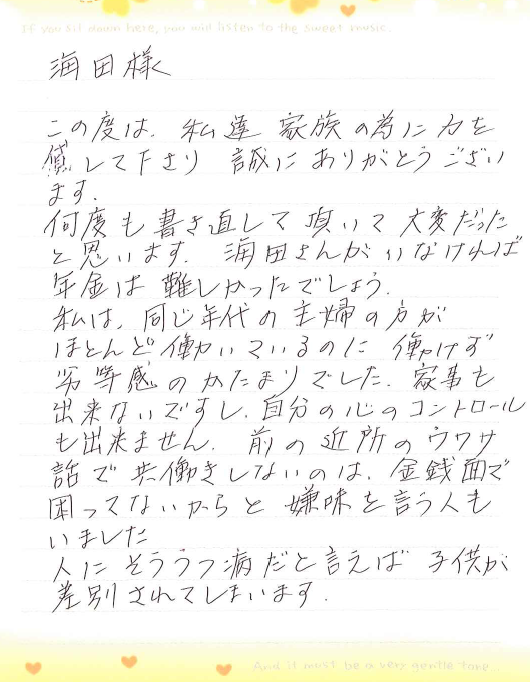 If you sit down here, you will listen to the sweet music.
海田様
この度は、私達家族の為に力を
貸して下さり 誠にありがとうござい
ます.
何度も書き直して頂いて大変だった
と思います. 海田さんがいなければ
年金は難しかったでしょう.
私は、同じ年代の主婦の方が
ほとんど働いているのに 働けず
劣等感のかたまりでした. 家事も
出来ないですし、自分の心のコントロール
も出来ません. 前の近所のウワサ
話で共働きしないのは、金銭面で
困ってないからと嫌味を言う人も
いました
人にそううつ病だと言えば 子供が
差別されてしまいます.
And it must be a very gentle tone